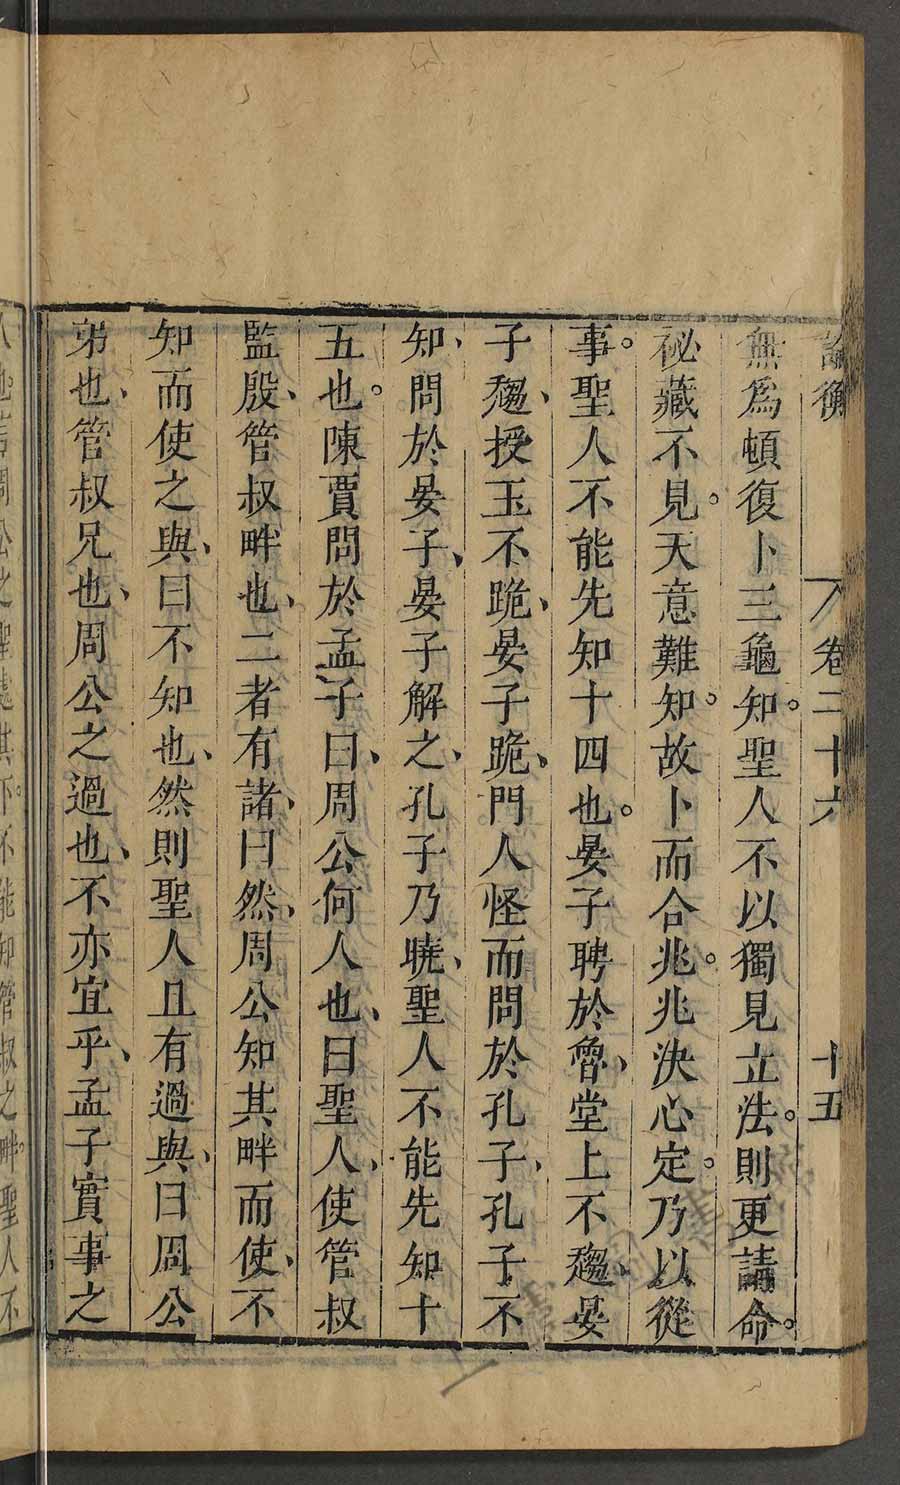 論衡 卷二十六 十五
無爲頓復卜三龜知。聖人不以獨見立法。則更請命。
祕藏不見。天意難知。故卜而合兆。兆決心定。乃以從
事。聖人不能先知十四也。晏子聘於魯、堂上不趨、晏
子趨、授玉不跪、晏子跪、門人怪而問於孔子、孔子不
知、問於晏子、晏子解之、孔子乃曉、聖人不能先知十
五也。陳賈問於孟子曰、周公何人也、曰聖人、使管叔
監殷、管叔畔也、二者有諸、曰然、周公知其畔而使、不
知而使之與、曰不知也、然則聖人且有過與、曰周公
弟也、管叔兄也、周公之過也、不亦宜乎、孟子實事之
人也言周公之聖處其下。不能知管叔之畔。聖人不